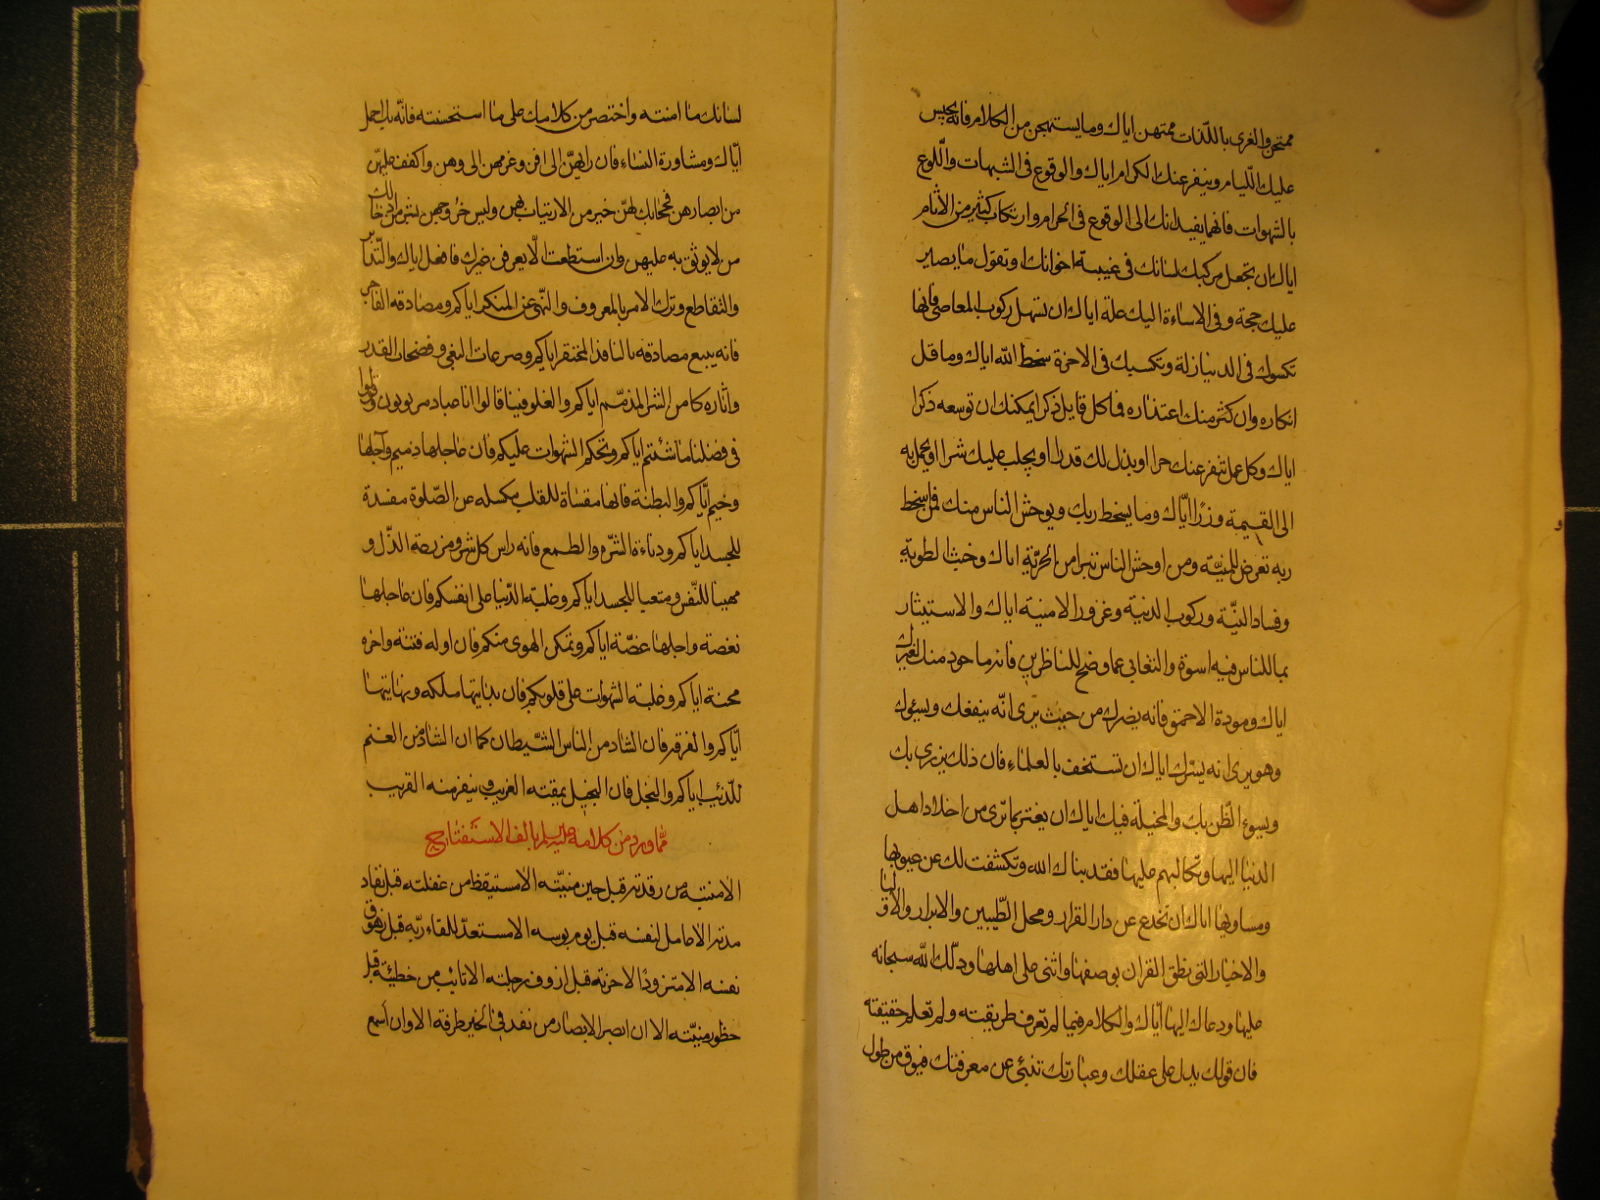 ممتحن والغرى باللذات ممتهن اياك وما يستهجن من الكلام فانه يحبس
عليك اللئيام وينفر عنك الكرام اياك والوقوع فى الشبهات والولوع
بالشهوات فانهما يقيدانك الى الوقوع فى الحرام وارتكاب كثير من الاثام
اياك ان تجعل مركبك لسانك فى غيبة اخوانك او تقول ما يصير
عليك حجة وفى الاساءة اليك علة اياك ان تستهل ركوب المعاصى فانها
تكسوك فى الدنيا ذلة وتكسبك فى الاخرة سخط الله اياك وما قل
انكاره وان كثر منك اعتذاره فما كل قايل ذكرا يمكنك ان توسعه ذكرا
اياك وكل عمل ينفر عنك حرا او يذل لك قدرا او يجلب عليك شرا او تحمل به
الى القيمة وزرا اياك وما يسخط ربك ويوحش الناس منك فمن اسخط
ربه تعرض للمنية ومن اوحش الناس تبرا من الحرية اياك وخبث الطوية
وفساد النية وركوب الدنية وغرور الامنية اياك والاستيثار
بما للناس فيه اسوة والتغابى عما وضح للناظرين فانه ماخوذ منك لغيرك
اياك ومودة الاحمق فانه يضرك من حيث يرى انه ينفعك ويسئوك
وهو يرى انه يسرك اياك ان تستخف بالعلماء فان ذلك يزرى بك
ويسوء الظن بك والمخيلة فيك اياك ان يغتر بما ترى من اخلاد اهل
الدنيا اليها وتكالبهم عليها فقد نباك الله وتكشفت لك عن عيوبها
ومساويها اياك ان تخدع عن دار القرار ومحل الطيبين والابرار والاوليا
والاخيار التى نطق القران بوصفها واثنى على اهلها ودلك الله سبحانه
عليها ودعاك اليها اياك والكلام فيما لم تعرف طريقته ولم تعلم حقيقته
فان قولك يدل على عقلك وعبارتك تنبئ عن معرفتك فتوق من طول
لسانك ما امنته واختصر من كلامك على ما استحسنته فانه بك اجمل
اياك ومشاورة النساء فان رايهن الى افن وعزمهن الى وهن واكفف عليهن
من ابصارهن فحجابك لهن خير من الارتياب بهن وليس خروجهن بشر من ادخالك
من لا يوثق به عليهن وان استطعت الا يعرفن غيرك فافعل اياك والتدابر
والتقاطع وترك الامر بالمعروف والنهى عن المنكر اياكم ومصادقه الفاجر
فانه يبيع مصادقه بالنافذ المحتقر اياكم وصرعات البغى وفضحات الغدر
واثاره كامن الشر المذمم اياكم والغلو فينا قالوا انا عباد مربوبون وقولوا
فى فضلنا ما شئتم اياكم وتحكم الشهوات عليكم فان عاجلها ذميم وآجلها
وخيم اياكم والبطنة فانها مقساة للقلب مكسله عن الصلوة مفسدة
للجسد اياكم ودناءة الشره والطمع فانه راس كل شر ومزرعة الذل و
مهينا للنفس ومتعبا للجسد اياكم وغلبة الدنيا على انفسكم فان عاجلها
نغصة واجلها غصة اياكم وتمكن الهوى منكم فان اوله فتنة واخره
محنة اياكم وغلبة الشهوات على قلوبكم فان بدايتها ملكه ونهايتها
اياكم والفرقه فان الشاذ من الناس للشيطان كما ان الشاذ من الغنم
للذئب اياكم والبخل فان البخيل يمقته الغريب وينفر منه القريب
مما ورد من كلامه عليه السلم بالف الاستفتاح
الا منتبه من رقدته قبل حين منيته الا مستيقظ من غفلته قبل نفاد
مدته الا عامل لنفسه قبل يوم بوسه الا مستعد للقاء ربه قبل زهوق
نفسه الا متزود لاخرته قبل ازوف رحلته الا تائب من خطيئة قبل
حظور منيته الا ان ابصر الابصار من نفد فى الخير طرفه الا وان اسمع